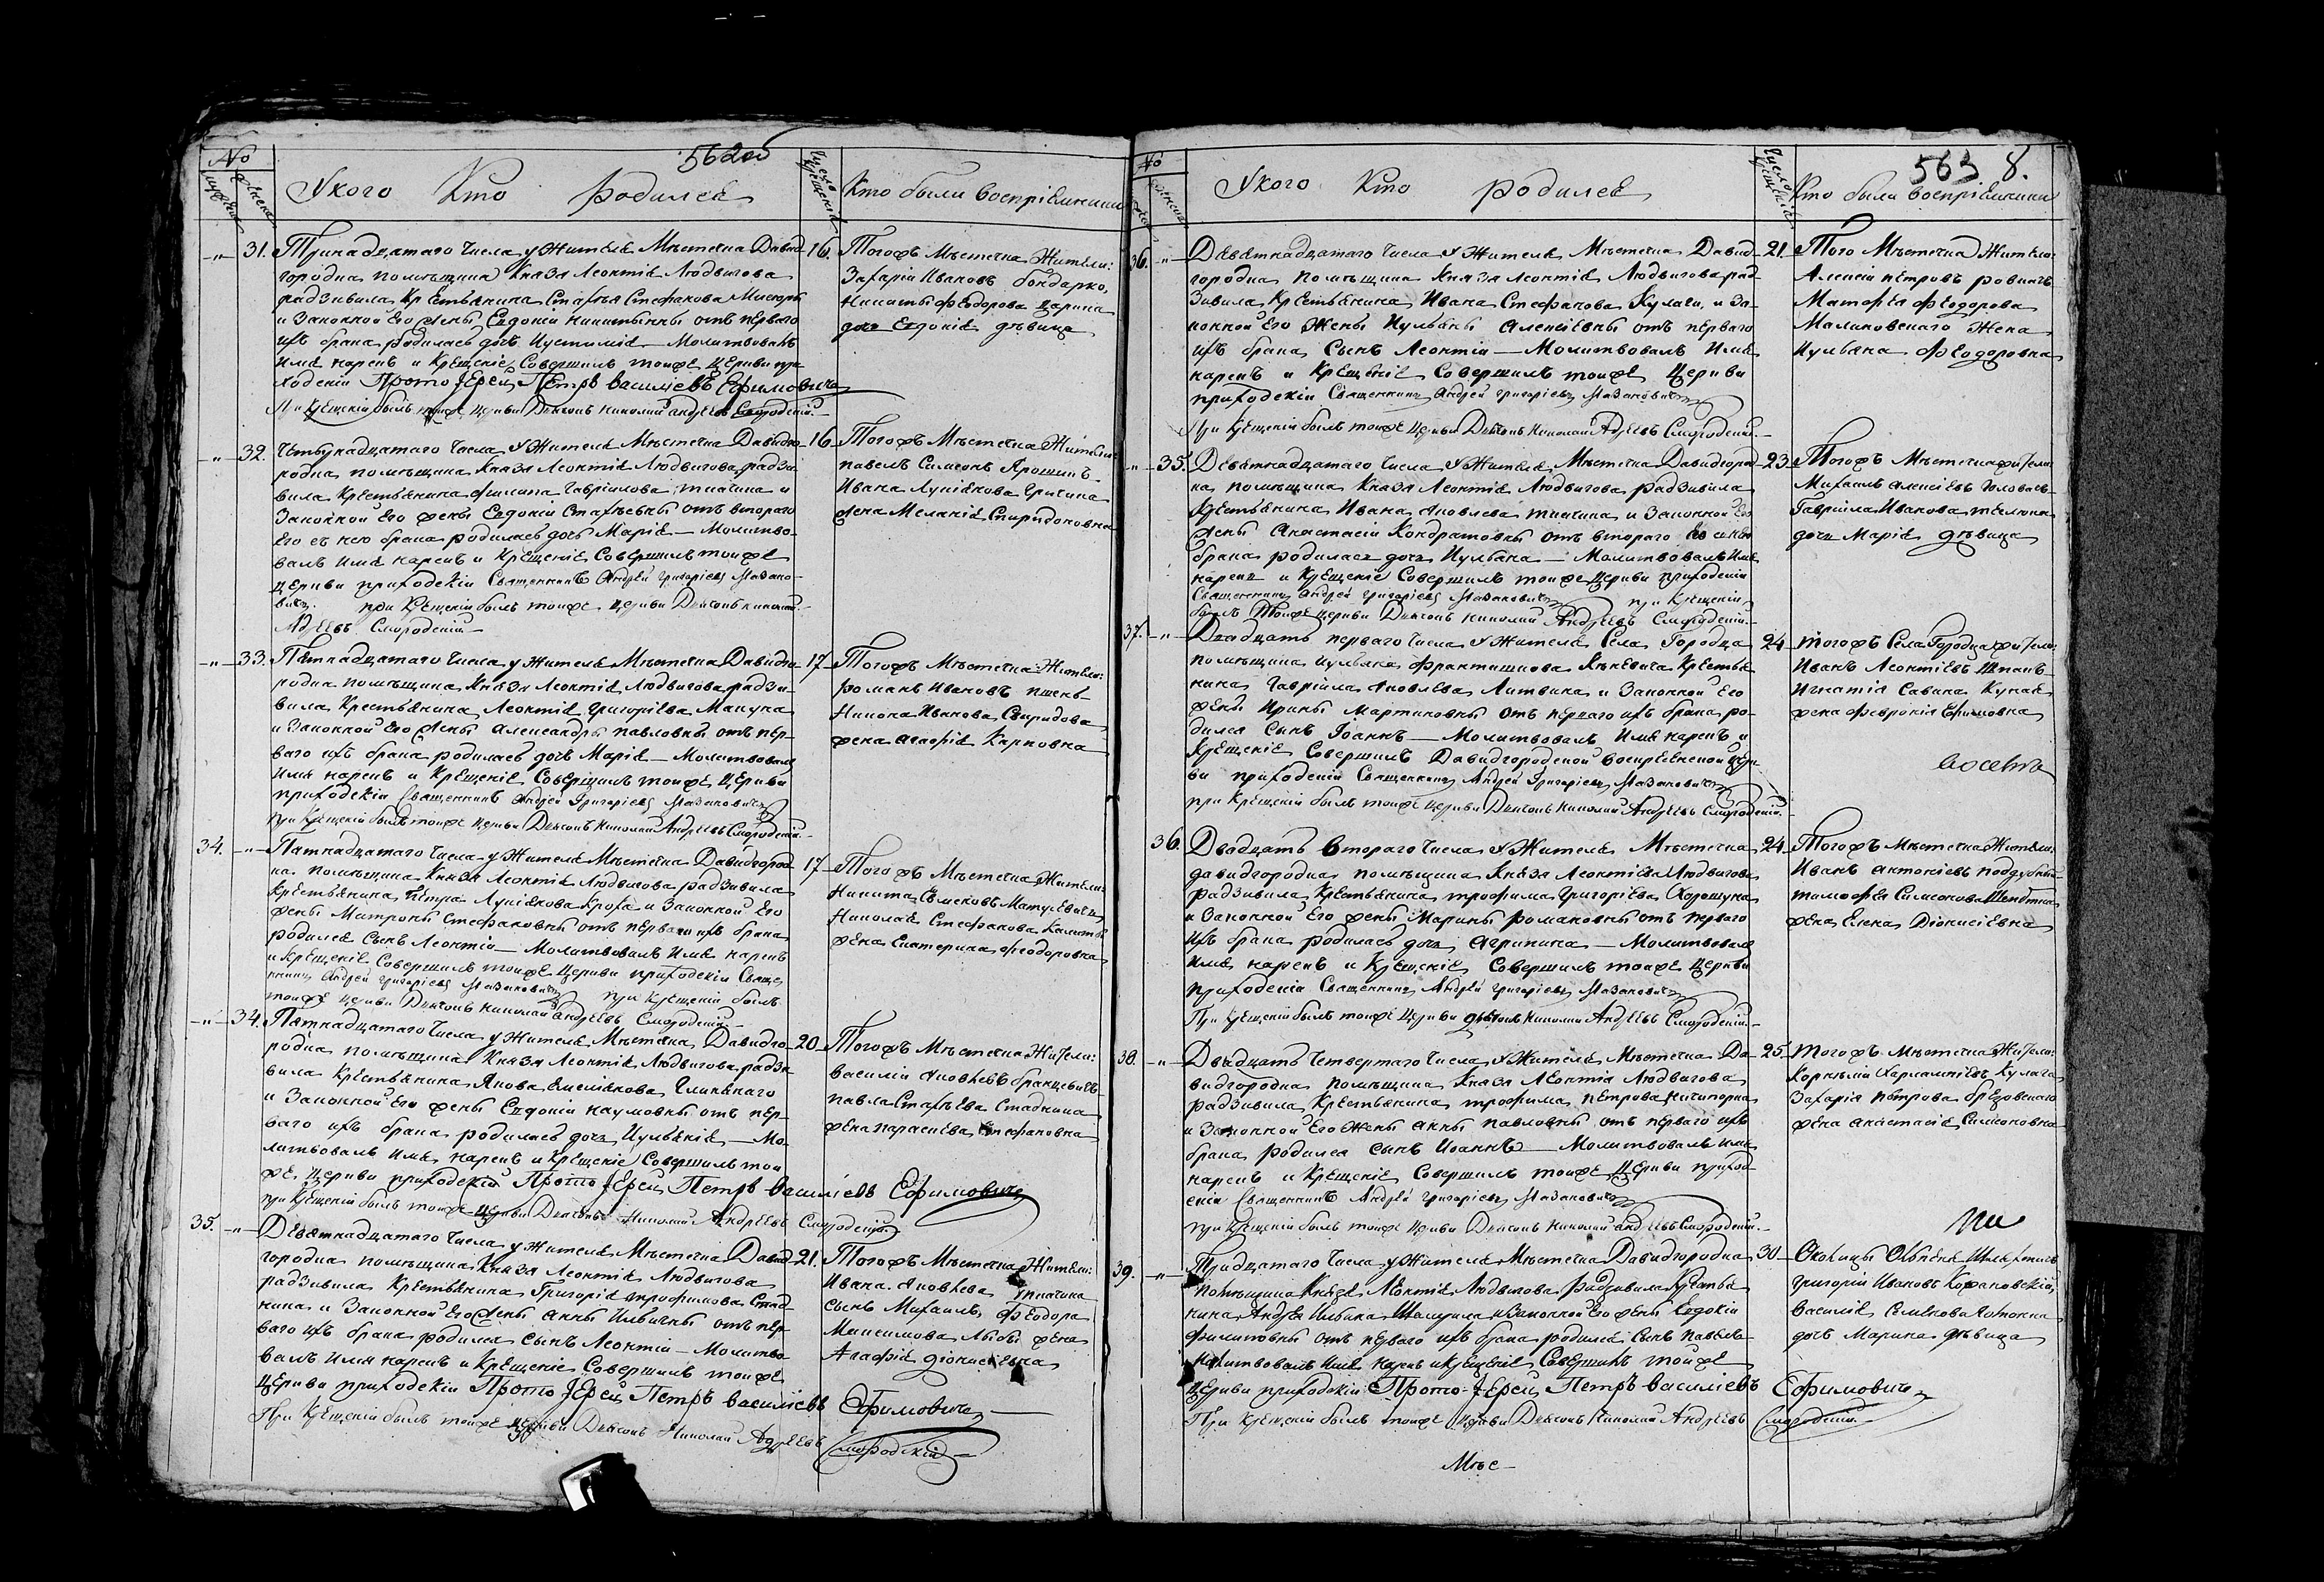 562об
№ Число крещенія
У кого Кто родился Кто были восприемники
31. Тринадцатаго числа у жителя Мѣстечка Давид 16.
городка помѣщика Князя Леонтія Людвигова
радзивила крестьянина Стахъя Стефанова
и законной его жены Евдокіи никитьины отъ перваго
ихъ брака родилась дочь Иустинія — Молитвовалъ
имя нарекъ и крещеніе совершилъ тоиже церкви при
ходскіи Прото Іерей Петръ василіевъ Ефимовичъ
При крещеніи былъ тоиже церкви Дьяконъ николай андреевъ Смородскій.
Тогожъ Мѣстечка Жители:
Захарій Ивановъ бондарко,
никиты феодорова Царика
дочь Евдокія дѣвица
32. Четырнадцатаго числа у жителя Мѣстечка Давидго 16
родка помѣщика Князя Леонтія Людвигова радзи
вила крестьянина филипа Гавріилова ткачика и
законной его жены Евдокіи Стахѣевны отъ втораго
его съ нею брака родилась дочь Марія — Молитво
валъ имя нарекъ и крещеніе совершилъ тоиже
церкви приходскіи Священникъ Андрей григоріевъ Мазано
вичъ. при крещеніи былъ тоиже церкви Дьяконъ николай
Адреевъ Смородскій —
Тогожъ Мѣстечка Жители
павелъ Симеонъ Ярошикъ
Ивана Лукіянова Гричика
жена Меланія Спиридоновна
33. Пятнадцатаго числа у жителя Мѣстечка Давидго 17
родка помѣщика Князя Леонтія Людвигова радзи
вила крестьянина Леонтія григоріева Макука
и законной его жены александры павловны отъ пер
ваго ихъ брака родилась дочь Марія — Молитвовалъ
имя нарекъ и крещеніе совершилъ тоиже церкви
приходскіи Священникъ Андрей Григоріевъ Мазановичъ
при крещеніи былъ тоиже церкви Дьяконъ николай Андреевъ Смородскій.
Тогожъ Мѣстечка Жители:
романъ Ивановъ
никона Иванова Свиридова
жена агафія Карповна
34. Пятнадцатаго числа у жителя Мѣстечка Давидгород 17
ка помѣщика Князя Леонтія Людвигова радзивила
крестьянина Петра Лукіянова Кроха и законной его
жены Матроны Стефановны отъ перваго ихъ брака
родился сынъ Леонтій — Молитвовалъ имя нарекъ
и крещеніе совершилъ тоиже церкви приходскіи Свяще
нникъ Андрей григоріевъ Мазановичъ при крещеніи былъ
тоиже церкви Дьяконъ николай андреевъ Смородскій —
Тогожъ Мѣстечка Жители
никита Семеновъ Матусевичъ
николая Стефанова
жена Екатерина феодоровна
34. Пятнадцатаго числа у жителя Мѣстечка Давидго 20
родка помѣщика Князя Леонтія Людвигова радзи
вила крестьянина Якова Емелянова
и законной его жены Евдокіи наумовны отъ пер
ваго ихъ брака родилась дочь Иульянія — Мо
литвовалъ имя нарекъ и крещеніе совершилъ тои
же церкви приходскіи Прото Іерей Петръ василіевъ Ефимовичъ
при крещеніи былъ тоиже церкви Дьяконъ Николай Андреевъ Смородскій
Тогожъ Мѣстечка Жители:
василіи яковлевъ бранцевичъ
павла Стахѣева Стадника
жена параскева Стефановна
35. Девятнадцатаго числа у жителя Мѣстечка Давид 21.
городка помѣщика Князя Леонтія Людвигова
радзивила крестьянина Григорія трофимова Стад
ника и законной его жены анны Ильичны отъ пер
ваго ихъ брака родился сынъ Леонтій — Молитво
валъ имя нарекъ и крещеніе совершилъ тоиже
церкви приходскіи Прото Іерей Петръ василіевъ Ефимовичъ
При крещеніи былъ тоиже церкви Дьяконъ Николай Адреевъ Смородскій
Тогожъ Мѣстечка Жители:
Ивана яковлева ткачика
сынъ Михаилъ, феодора
Максимова жена
Агафія діонисіевна
563 8.
№ Число крещенія
У кого Кто родился Кто были восприемники
36. Девятнадцатаго числа у жителя Мѣстечка Давид 21.
городка помѣщика Князя Леонтія Людвигова рад
зивила крестьянина Ивана Стефанова Кулаги, и за
конной его жены Иульяны алексіевны отъ перваго
ихъ брака сынъ Леонтіи — Молитвовалъ имя
нарекъ и крещеніе совершилъ тоиже церкви
приходскіи Священникъ Андрей григоріевъ Мазановичъ
При крещеніи былъ тоиже церкви Дьяконъ николай Адреевъ Смородскій.
Того Мѣстечка Жители:
Алексіи петровъ ровингъ
Матфея феодорова
Малиновскаго жена
Иульяна феодоровна
35. Девятнадцатаго числа у жителя Мѣстечка Давидгород 23
ка помѣщика Князя Леонтія Людвигова радзивила
крестьянина Ивана яковлева ткачика и законной его
жены анастасіи Кондратовны отъ втораго его съ нею
брака родилась дочь Иульяна — Молитвовалъ имя
нарекъ и крещеніе совершилъ тоиже церкви приходскіи
Священникъ Андрей григоріевъ Мазановичъ при крещеніи
былъ тоиже церкви Дьяконъ николай Андреевъ Смородскій.
Тогожъ Мѣстечка жители
Михаилъ алексіевъ
Гавріила Иванова
дочь Марія дѣвица
37. Двадцать перваго числа у жителя Села Городца 24
помѣщика Иульяна франтишкова крестья
нина Гавріила яковлева Литвина и законной его
жены Ирины Мартиновны отъ перваго ихъ брака ро
дился сынъ Іоаннъ — Молитвовалъ имя нарекъ и
крещеніе совершилъ Давидгородской воскресенской церк
ви приходскіи Священникъ Андрей Григоріевъ Мазановичъ
при крещеніи былъ тоиже церкви Дьяконъ николай Андреевъ Смородскій.
тогожъ Села Городца жители:
Иванъ Леонтіевъ Шпакъ
Игнатія Савина
жена феврония Ефимовна
36. Двадцать втораго числа у жителя Мѣстечка 24.
давидгородка помѣщика Князя Леонтія Людвигова
радзивила крестьянина трофима григоріева Хорошука
и законной его жены Марины романовны отъ перваго
ихъ брака родилась дочь агрипина — Молитвовалъ
имя нарекъ и крещеніе совершилъ тоиже церкви
приходскіи Священникъ Андрей григоріевъ Мазановичъ
При крещеніи былъ тоиже церкви дьяконъ николай Андреевъ Смородскій.
Тогожъ Мѣстечка Жители:
Иванъ антоніевъ поддубный
тимофея Симеонова
жена Елена Діонисіевна
38. Двадцать четвертаго числа у жителя Мѣстечка Да 25
видгородка помѣщика Князя Леонтія Людвигова
радзивила крестьянина трофима петрова ничипорка
и законной его жены анны павловны отъ перваго ихъ
брака родился сынъ Иоаннъ — Молитвовалъ имя
нарекъ и крещеніе совершилъ тоиже церкви приход
скіи Священникъ Андрей григоріевъ Мазановичъ
при крещеніи былъ тоиже церкви Дьяконъ николай андреевъ Смородскій.
тогожъ Мѣстечка Жители:
Корнилій Харлампіевъ Кулага
Захарія петрова брезовскаго
жена анастасія Симеоновна
39. Тридцатаго числа у жителя Мѣстечка Давидгородка 30
помѣщика Князя Леонтія Людвигова Радзивила крестья
нина Андрея Ильина и законной его жены Евдокіи
филиповны отъ перваго ихъ брака родился сынъ павелъ
Молитвовалъ имя нарекъ и крещеніе совершилъ тоиже
церкви приходскіи Прото-Іерей Петръ василіевъ Ефимовичъ
При крещеніи былъ тоиже церкви Дьяконъ Николай Андреевъ Смородскій.
Околицы
григорій Ивановъ
василія Семенова
дочь Марина дѣвица
Мѣс—